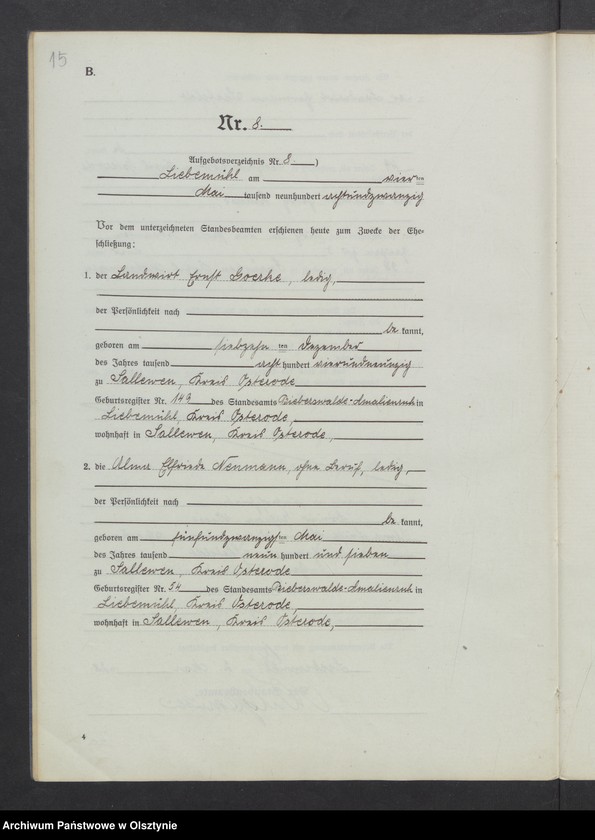 15
B.
Nr. 8.
Aufgebotsverzeichnis Nr. 8 )
Liebemühl am vierten
Mai tausend neunhundert achtundzwanzig
Vor dem unterzeichneten Standesbeamten erschienen heute zum Zwecke der Ehe-
schließung:
1. der Landwirt Ernst Goerke, ledig,
der Persönlichkeit nach
be kannt,
geboren am siebzehn ten Dezember
des Jahres tausend acht hundert vierundneunzig
zu Sallewen, Kreis Osterode
Geburtsregister Nr. 149 des Standesamts Bieberswalde-Amalienruh in
Liebemühl, Kreis Osterode,
wohnhaft in Sallewen, Kreis Osterode,
2. die Alma Elfriede Neumann, ohne Beruf, ledig,
der Persönlichkeit nach
be kannt,
geboren am fünfundzwanzigsten Mai
des Jahres tausend neun hundert und sieben
zu Sallewen, Kreis Osterode
Geburtsregister Nr. 54 des Standesamts Bieberswalde-Amalienruh in
Liebemühl, Kreis Osterode,
wohnhaft in Sallewen, Kreis Osterode,
4
Archiwum Państwowe w Olsztynie